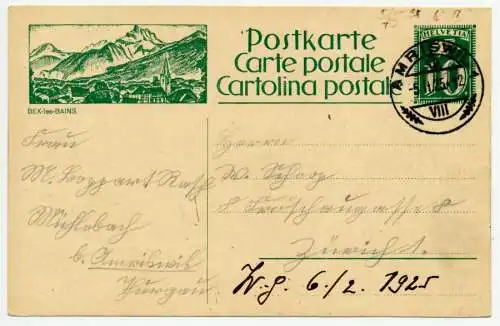 Postkarte
Carte postale
Cartolina postale
HELVETIA
10
AMRISWIL
VIII
BEX-les-BAINS
Frau
Mühlebach
b. Amriswil
Thurgau
Herrn
W.
8 Fröschaugasse 8
Zürich 1.
6./2. 1925